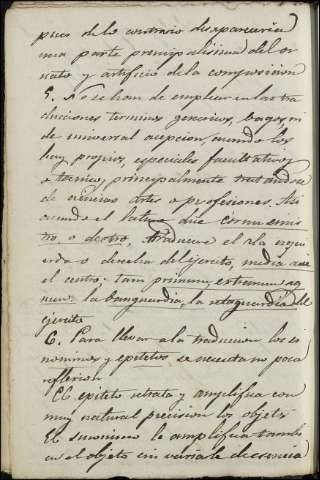 pues de lo contrario desapareceria
una parte principalisima del or
nato y artificio de la composicion
5. No se han de emplear en las tra
ducciones terminos genericos, bagos, ni
de universal acepcion, cuando los
hay propios, especiales facultativos
o tecnicos, principalmente tratandose
de ciencias artes o profesiones. Asi
cuando el latino dice cornu sinis
tro, o dextro, traducire el ala izquier
da o derecha del ejercito, media acie
el centro: tam primum, extremum ag
men, la banguardia, la retaguardia del
ejercito
6. Para llevar a la traduccion los si
nonimos y epitetos se necesita no poca
reflexion.
El epiteto retrata y amplifica con
muy natural precision los objets
El sinonimo le amplifica tambn
en el objeto sin variarle de esencia